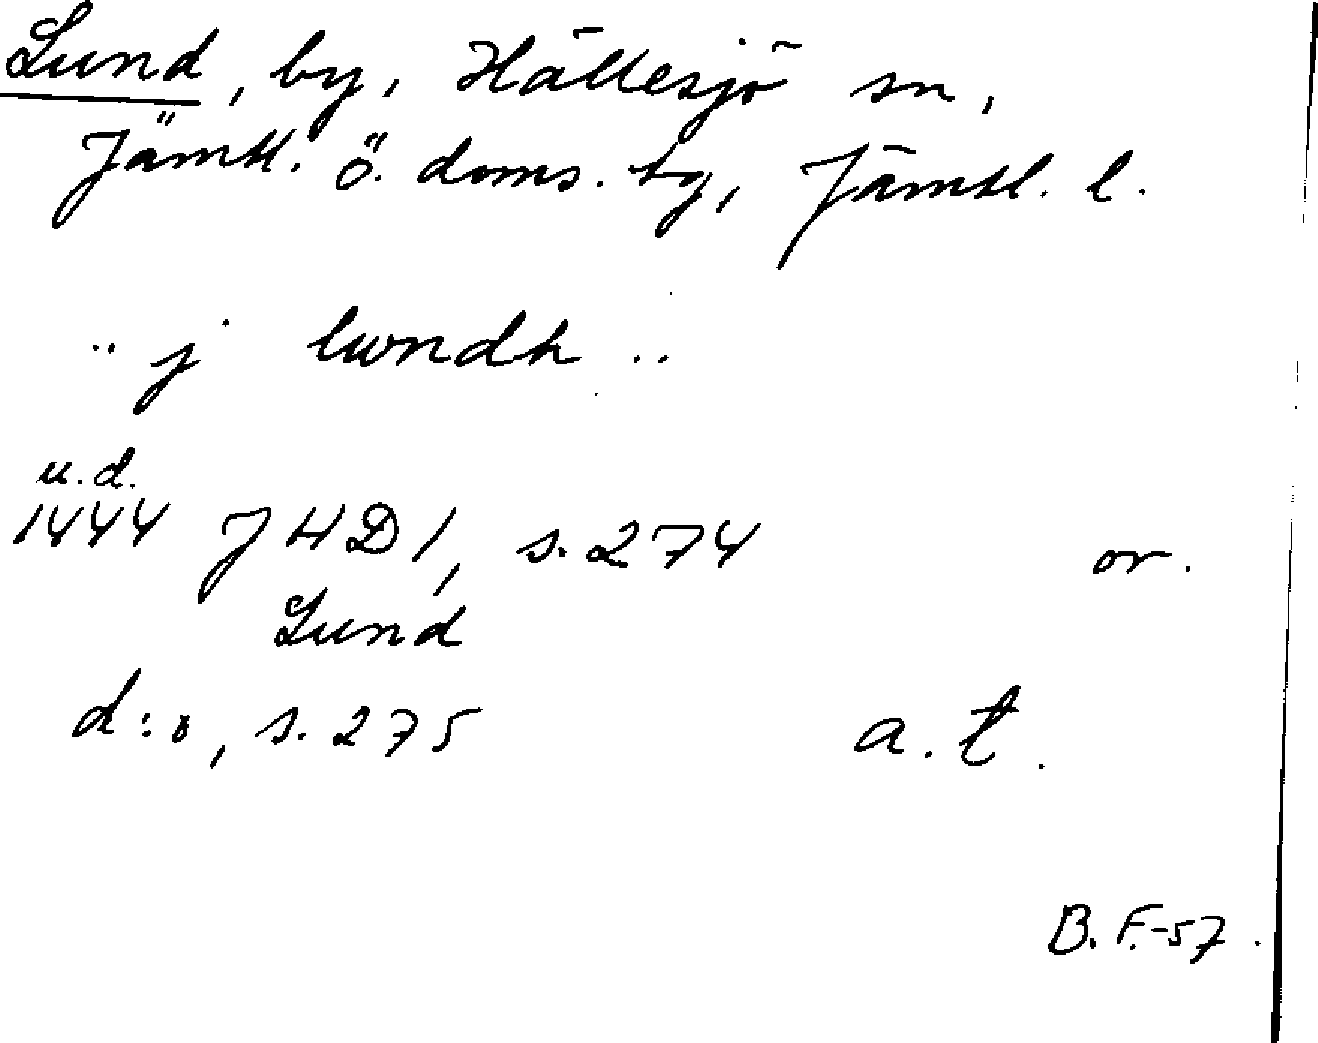 Lund, by, Hällesjö sn,
Jämtl. ö. doms. tg, Jämtl. l.
.. j lwndh ..
u.d.
1444 JHD 1, s. 274 or.
Lund
d:o, s. 275 a. t.
B. F.-57.